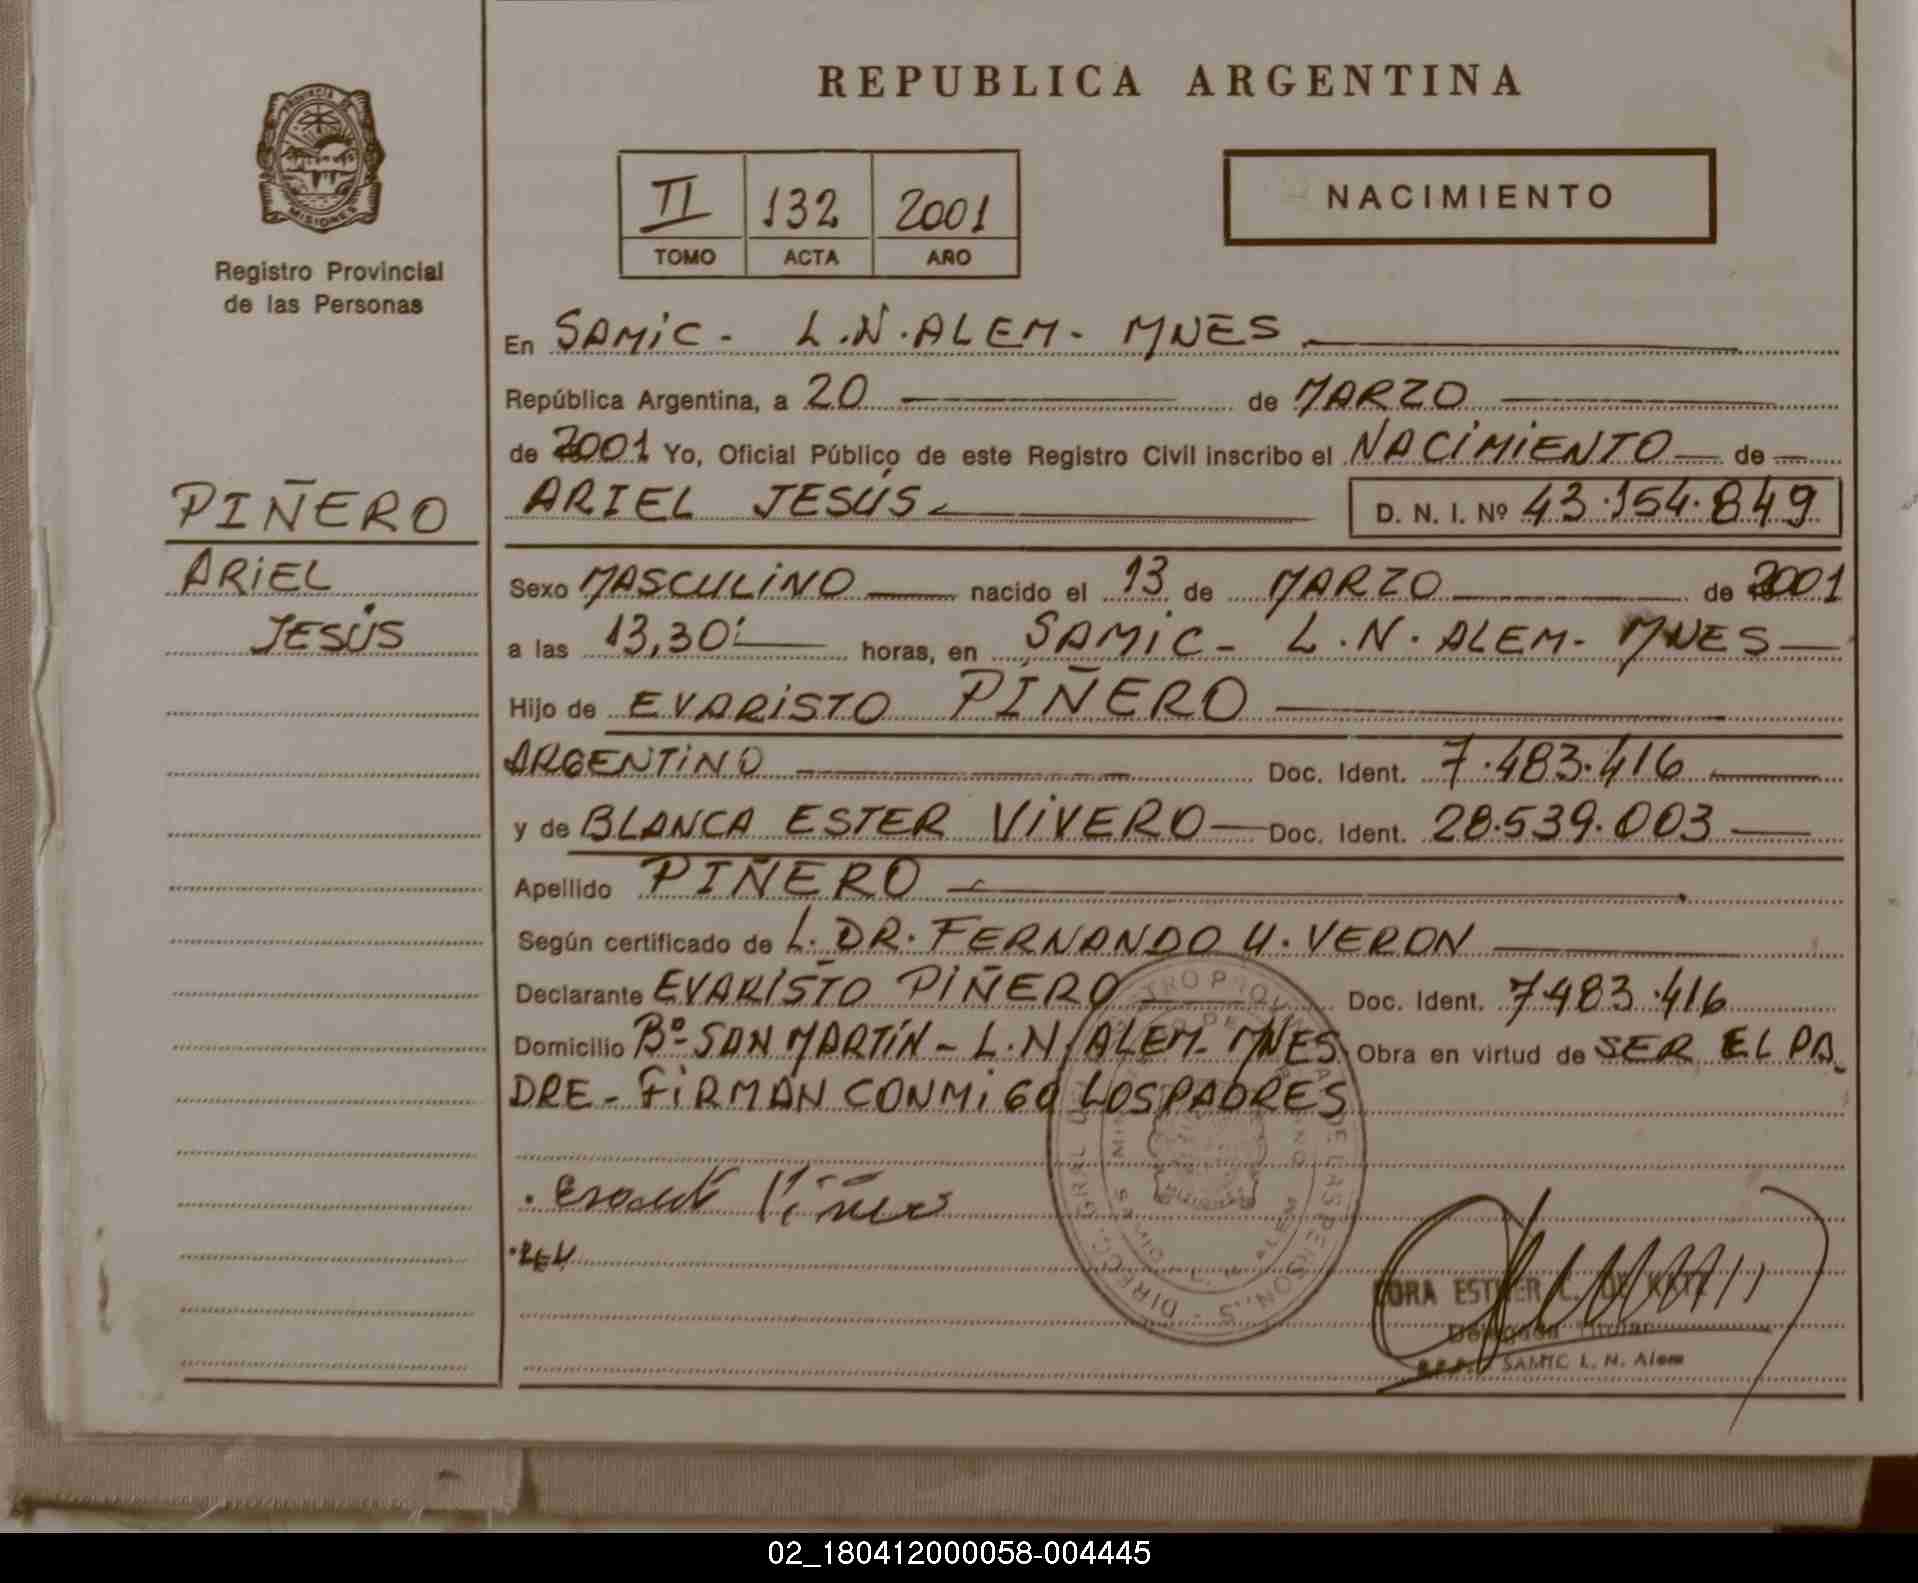 REPUBLICA ARGENTINA
PROVINCIA DE
MISIONES
Registro Provincial
de las Personas
II 132 2001
TOMO ACTA AÑO
NACIMIENTO
En SAMiC - L.N.ALEM - MNES
República Argentina, a 20 de MARZO
de 2001 Yo, Oficial Público de este Registro Civil inscribo el NACiMiENTO de
PIÑERO
ARIEL JESÚS
D. N. I. Nº 43.154.849
ARiEL
JESÚS
Sexo MASCULiNO nacido el 13 de MARZO de 2001
a las 13,30' horas, en SAMiC - L.N.ALEM - MNES
Hijo de EVARiSTO PIÑERO
ARGENTiNO Doc. Ident. 7.483.416
y de BLANCA ESTER ViVERO Doc. Ident. 28.539.003
Apellido PIÑERO
Según certificado de L. DR. FERNANDO U. VERON
Declarante EVARiSTO PiÑERO Doc. Ident. 7483.416
Domicilio Bº SAN MARTíN - L.N. ALEM - MNES Obra en virtud de SER EL PA
DRE - FiRMAN CONMiGO LOS PADRES
DORA ESTHER C. DE KATZ
Delegada Titular
SAMIC L. N. Alem
02_180412000058-004445